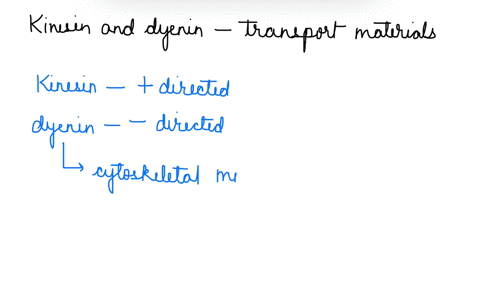 Kinesin and dyenin — transport materials
Kinesin — + directed
dyenin — - directed
cytoskeletal m